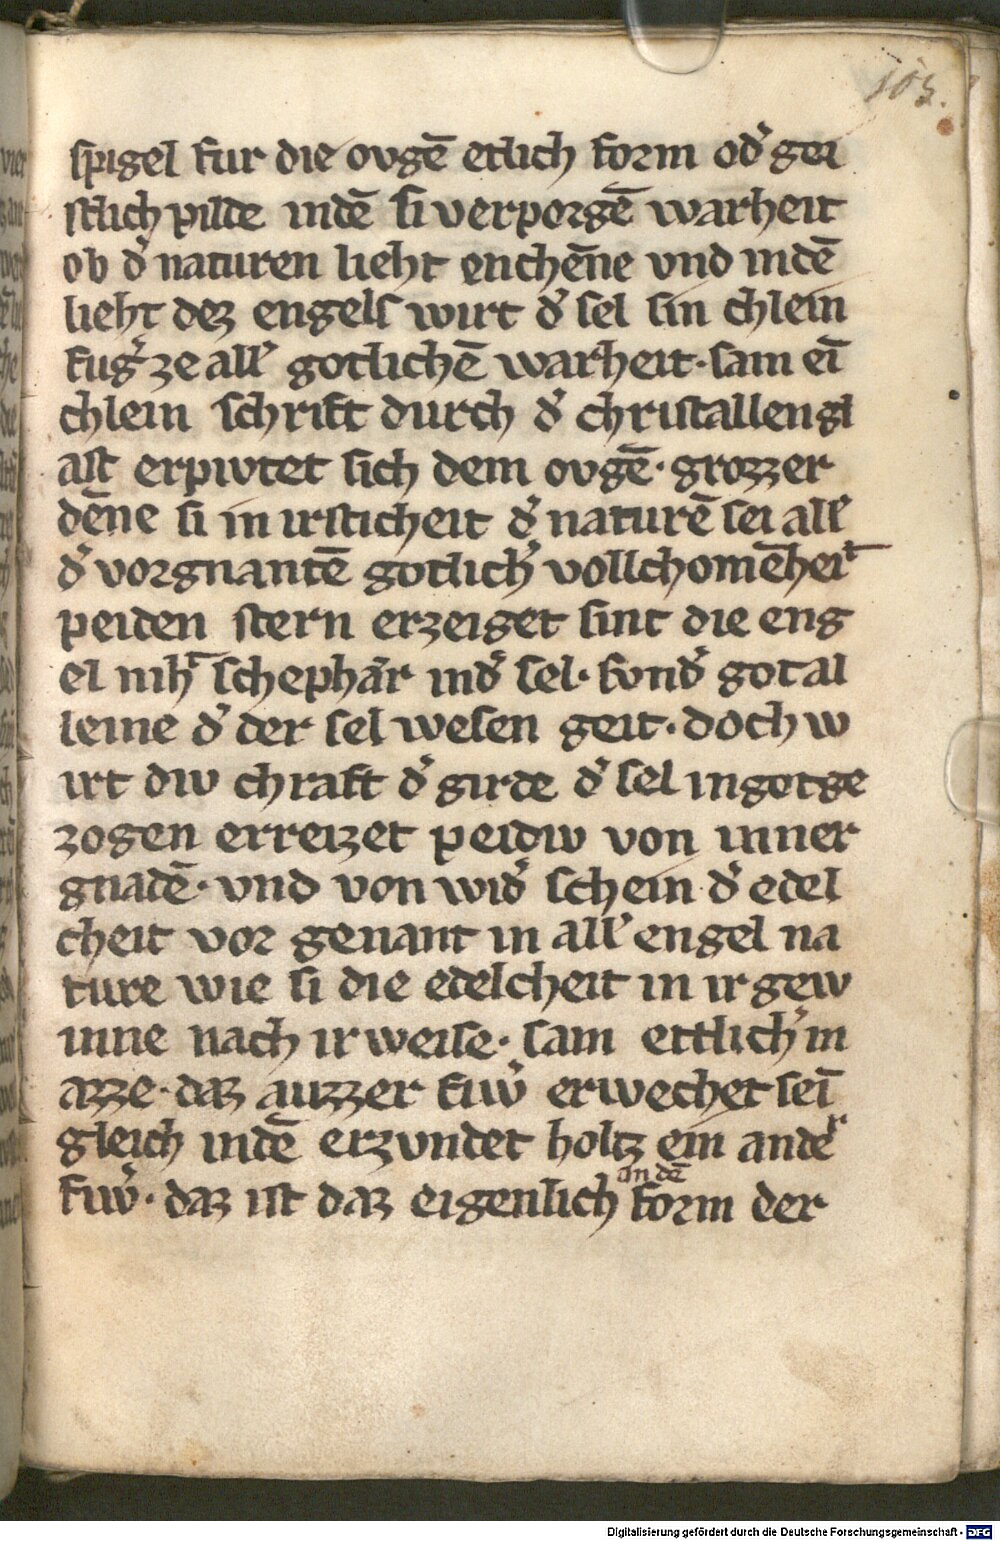 103.
spigel fur die ovgē etlich form od̾ gei
stlich pilde indē si verporgē warheit
ob d̾ naturen lieht enchēne vnd indē
lieht dez engels wirt d̾ sel sin chlein
fug̾ ze all̾ gotlichē warheit · sam eī
chlein schrift durch d̾ christallengl
ast erpivtet sich dem ovgē · grozzer
dēne si in irsticheit d̾ naturē sei all̾
d̾ vorgnantē gotlich̾ vollchomēheit
peiden stern erzeiget sint die eng
el niht schephār ind̾ sel · svnd̾ got al
leine d̾ der sel wesen geit · doch w
irt div chraft d̾ girde d̾ sel in got ge
zogen erreizet peidiv von inner
gnadē · vnd von wid̾ schein d̾ edel
cheit vor genant in all̾ engel na
ture wie si die edelcheit in ir gew
inne nach ir weise · sam ettlich̾ m
azze · daz auzzer fiw̾ erwechet seī
gleich indē erzvndet holtz ein ander
fiw̾ · daz ist daz eigenlich an dē form der
Digitalisierung gefördert durch die Deutsche Forschungsgemeinschaft - DFG